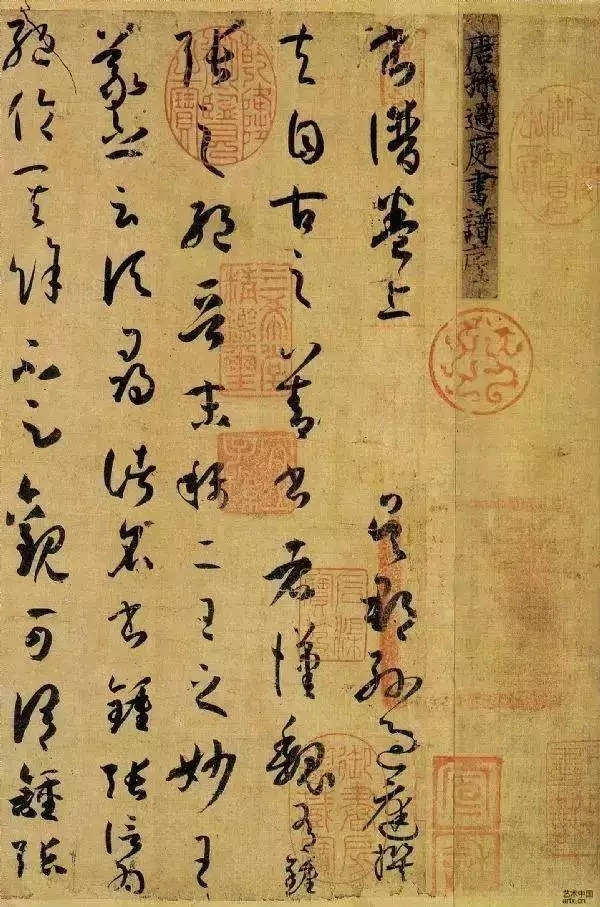 唐孫過庭書譜序
書譜卷上 吳郡孫過庭撰
夫自古之善書者漢魏有鍾
張之絕晉末稱二王之妙王
羲之云頃尋諸名書鍾張信為
絕倫其餘不足觀可謂鍾張
三希堂精鑒璽
宜子孫
艺术中国
artx.cn